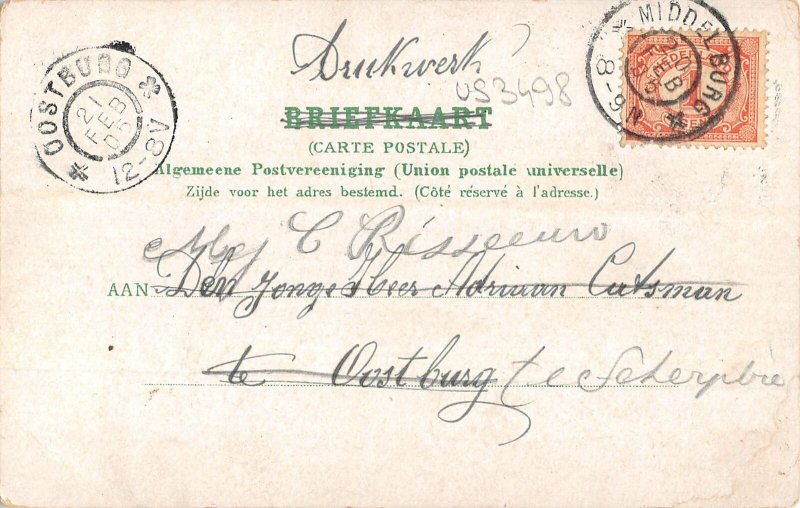 Drukwerk
US3498
BRIEFKAART
(CARTE POSTALE)
Algemeene Postvereeniging (Union postale universelle)
Zijde voor het adres bestemd. (Côté réservé à l'adresse.)
OOSTBURG
21
FEB
05
12-8V
MIDDELBURG
FEB
8-9N
Mej C Risseeuw
AAN Den Jonge Heer Adriaan Catsman
te Oostburg te Scherpbie